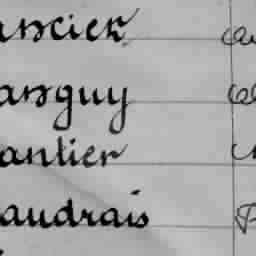 ancier
anguy
antier
audrais